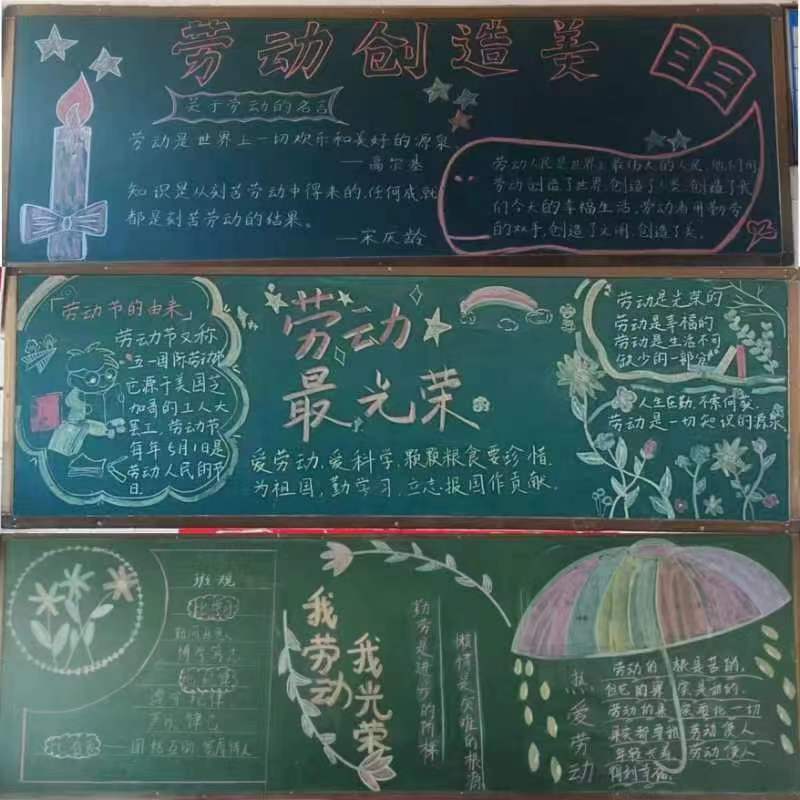 劳动创造美
关于劳动的名言
劳动是世界上一切欢乐和美好的源泉
——高尔基
知识是从刻苦劳动中得来的,任何成就
都是刻苦劳动的结果。
——宋庆龄
劳动人民是世界上最伟大的人民,他们用
劳动创造了世界,创造了人类,创造了我
们今天的幸福生活,劳动者用勤劳
的双手,创造了文明,创造了美。
「劳动节的由来」
劳动节又称
五一国际劳动节
它源于美国芝
加哥的工人大
罢工,劳动节
每年5月1日是
劳动人民的节
日
劳动
最光荣
爱劳动,爱科学,颗颗粮食要珍惜
为祖国,勤学习,立志报国作贡献.
劳动是光荣的
劳动是幸福的
劳动是生活不可
缺少的一部分
人生在勤,不索何获
劳动是一切知识的源泉
班规
团结互助,宽厚待人
我劳动
我光荣
勤劳是进步的阶梯
懒惰是灾难的根源
热爱劳动
劳动的根是苦的,
劳动的果
劳动使人
劳动使人